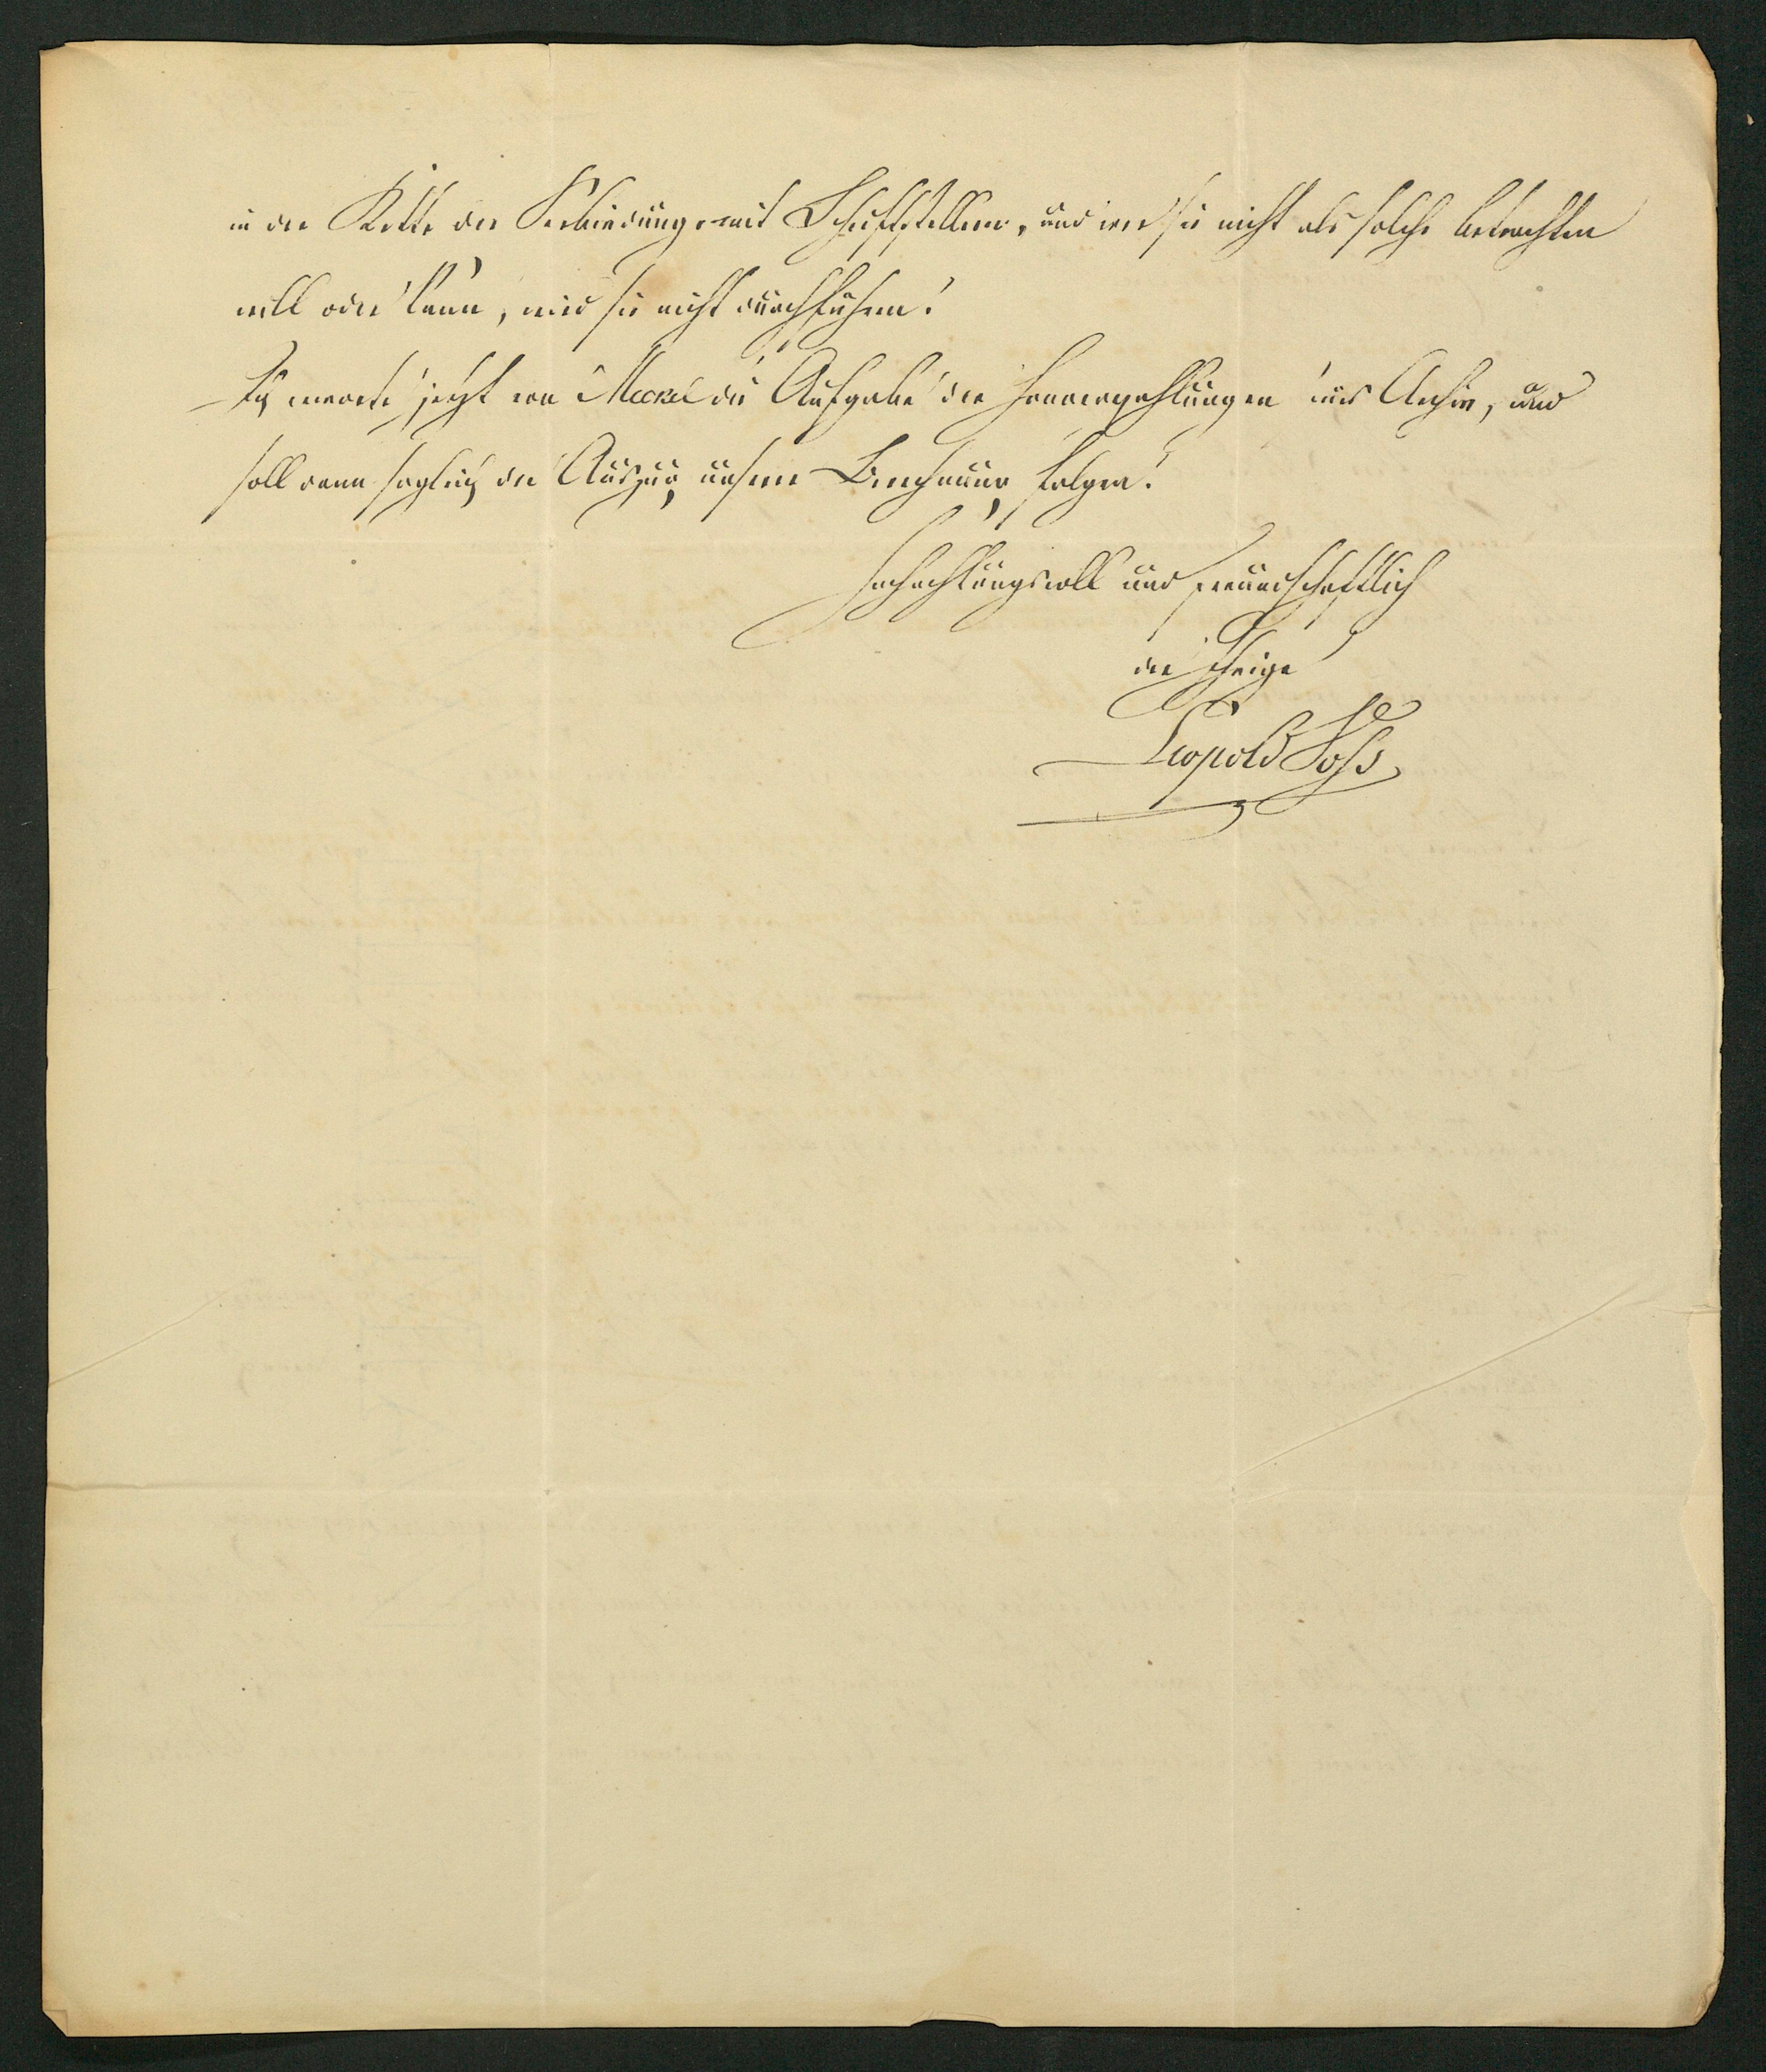 in der Kette der Verbindung mit Schriftstellern, und wer sie nicht als solche betrachten
will oder kann, wird sie nicht durchführen!
Ich erwarte jetzt von Meckel die Aufgabe der Honorarzahlungen ins Archiv, und
soll dann sogleich der Auszug unserer Berechnung folgen!
Hochachtungsvoll und freundschaftlich
der Ihrige
Leopold Voß